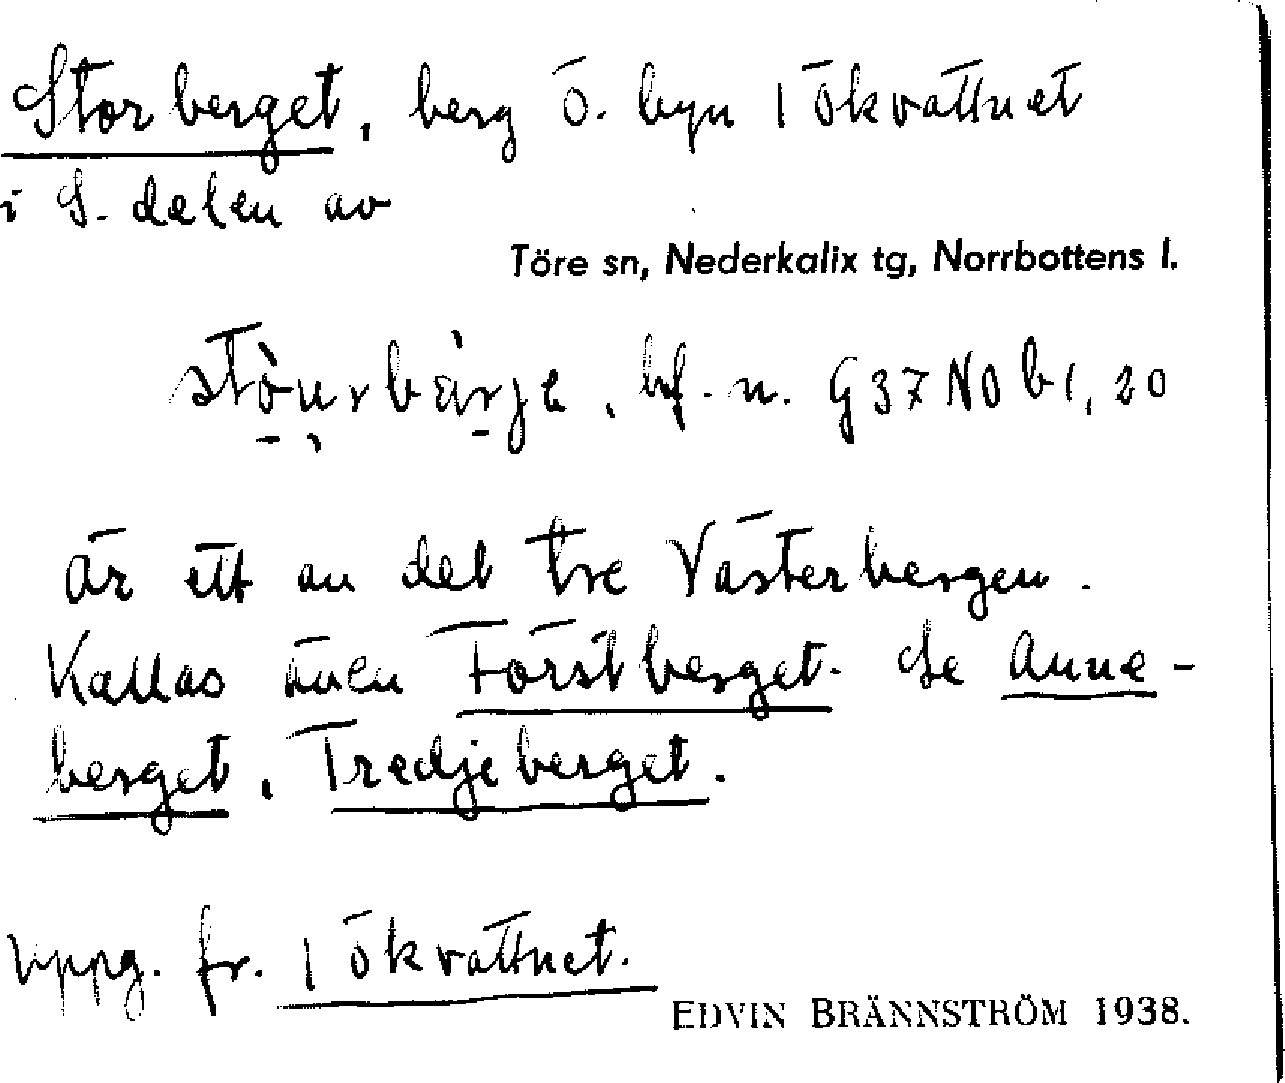 Storberget, berg ö. byn Tökvattnet
i S. delen av
Töre sn, Nederkalix tg, Norrbottens l.
bf. n. G37 NO b1, 20
är ett av det tre Västerbergen.
Kallas även Förstberget. Se Anne-
berget, Tredjeberget.
Uppg. fr. Tökvattnet.
EDVIN BRÄNNSTRÖM 1938.